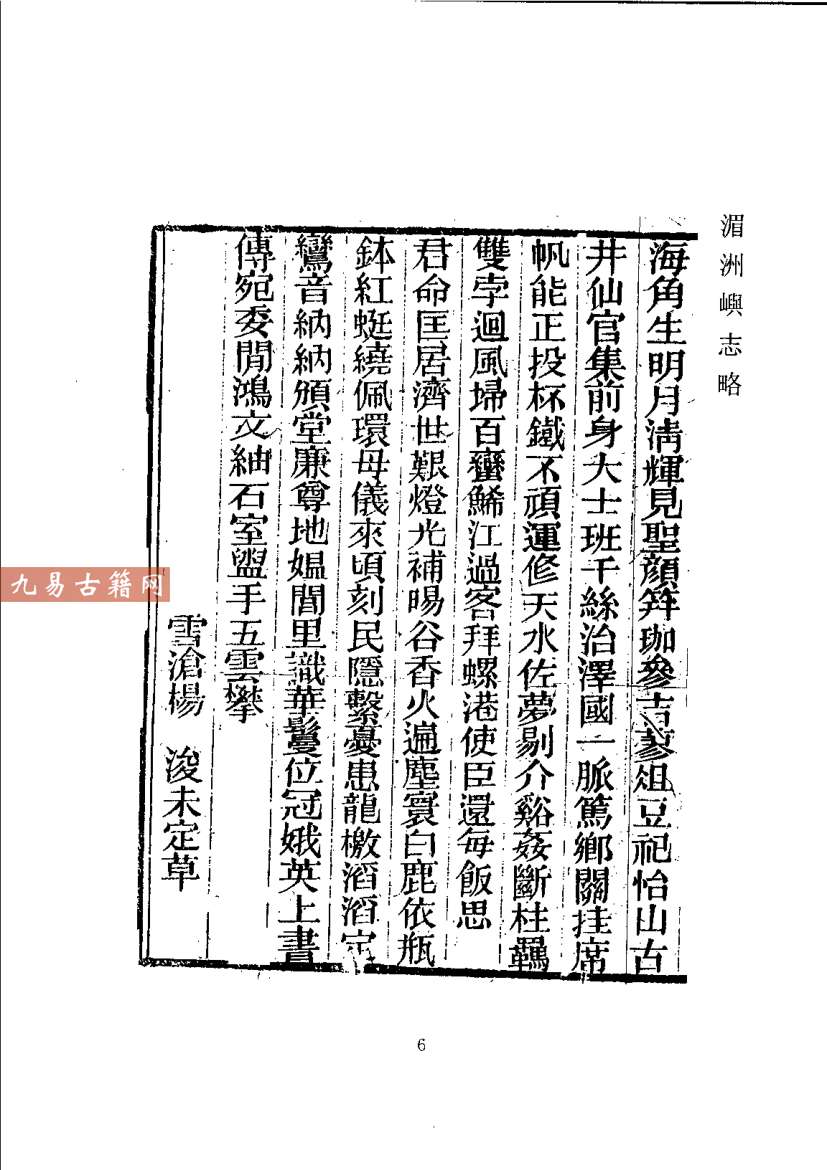 湄洲嶼志略
海角生明月清輝見聖顏笄珈參吉蓼俎豆祀怡山古
井仙官集前身大士班千絲治澤國一脈篤鄉關挂席
帆能正投杯鐵不頑運修天水佐夢剔介谿姦斷柱羈
雙孛迴風埽百蠻鯑江過客拜螺港使臣還每飯思
君命匡居濟世艱燈光補暘谷香火遍塵寰白鹿依瓶
鉢紅蜓繞佩環母儀來頃刻民隱繫憂患龍檄滔滔定
鸞音納納頒堂廉尊地媼閭里識華鬘位冠娥英上書
傳宛委閒鴻文紬石室盥手五雲攀
雪滄楊 浚未定草
九易古籍网
6